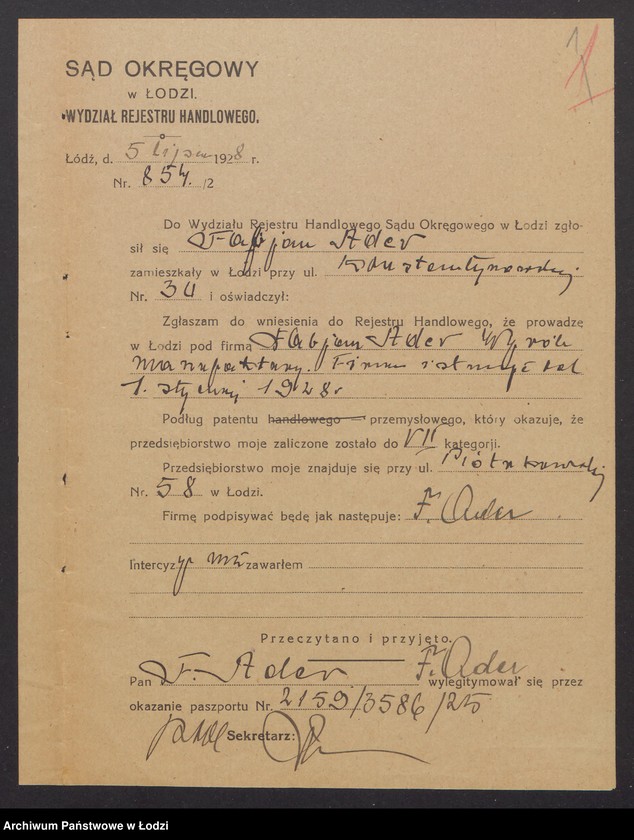 1
SĄD OKRĘGOWY
w ŁODZI.
WYDZIAŁ REJESTRU HANDLOWEGO.
Łódź, d. 5 lipca 1928 r.
Nr. 854. /2
Do Wydziału Rejestru Handlowego Sądu Okręgowego w Łodzi zgło-
sił się Fabjan Ader
zamieszkały w Łodzi przy ul. Konstantynowskiej
Nr. 34 i oświadczył:
Zgłaszam do wniesienia do Rejestru Handlowego, że prowadzę
w Łodzi pod firmą Fabjan Ader Wyrób
Manufaktury. Firma istnieje od
1. stycznia 1928 r
Podług patentu handlowego przemysłowego, który okazuje, że
przedsiębiorstwo moje zaliczone zostało do VII kategorji.
Przedsiębiorstwo moje znajduje się przy ul. Piotrkowskiej
Nr. 58 w Łodzi.
Firmę podpisywać będę jak następuje: F. Ader
Intercyzy nie zawarłem
Przeczytano i przyjęto.
Pan F. Ader F. Ader wylegitymował się przez
okazanie paszportu Nr. 2159/3586/25
Sekretarz:
Archiwum Państwowe w Łodzi